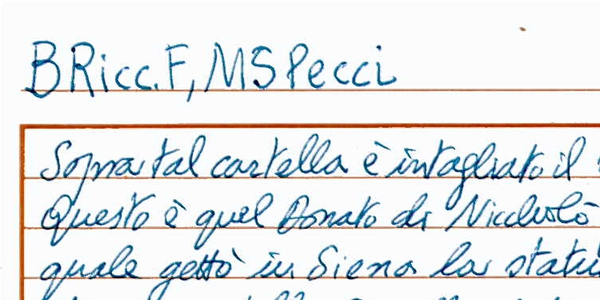 BRicc.F, MS Pecci
Sopra tal cartella è intagliato il
Questo è quel Donato di Niccholò
quale gettò in Siena la statu